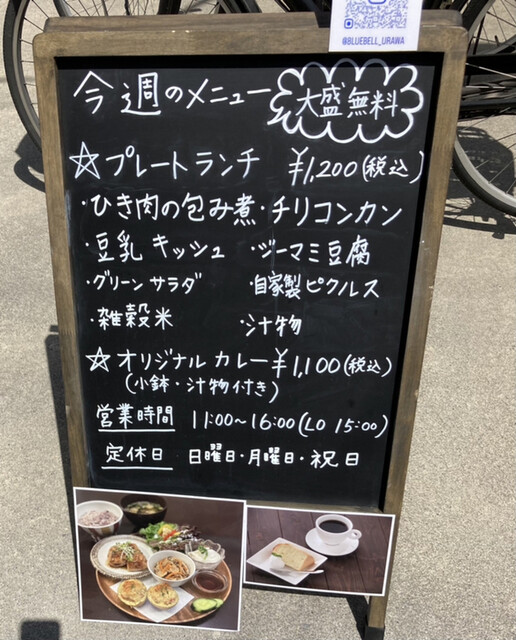 @BLUEBELL_URAWA
今週のメニュー 大盛無料
☆プレートランチ ¥1,200(税込)
・ひき肉の包み煮・チリコンカン
・豆乳キッシュ ・ジーマミ豆腐
・グリーンサラダ ・自家製ピクルス
・雑穀米 ・汁物
☆オリジナルカレー¥1,100(税込)
(小鉢・汁物付き)
営業時間 11:00~16:00(LO 15:00)
定休日 日曜日・月曜日・祝日